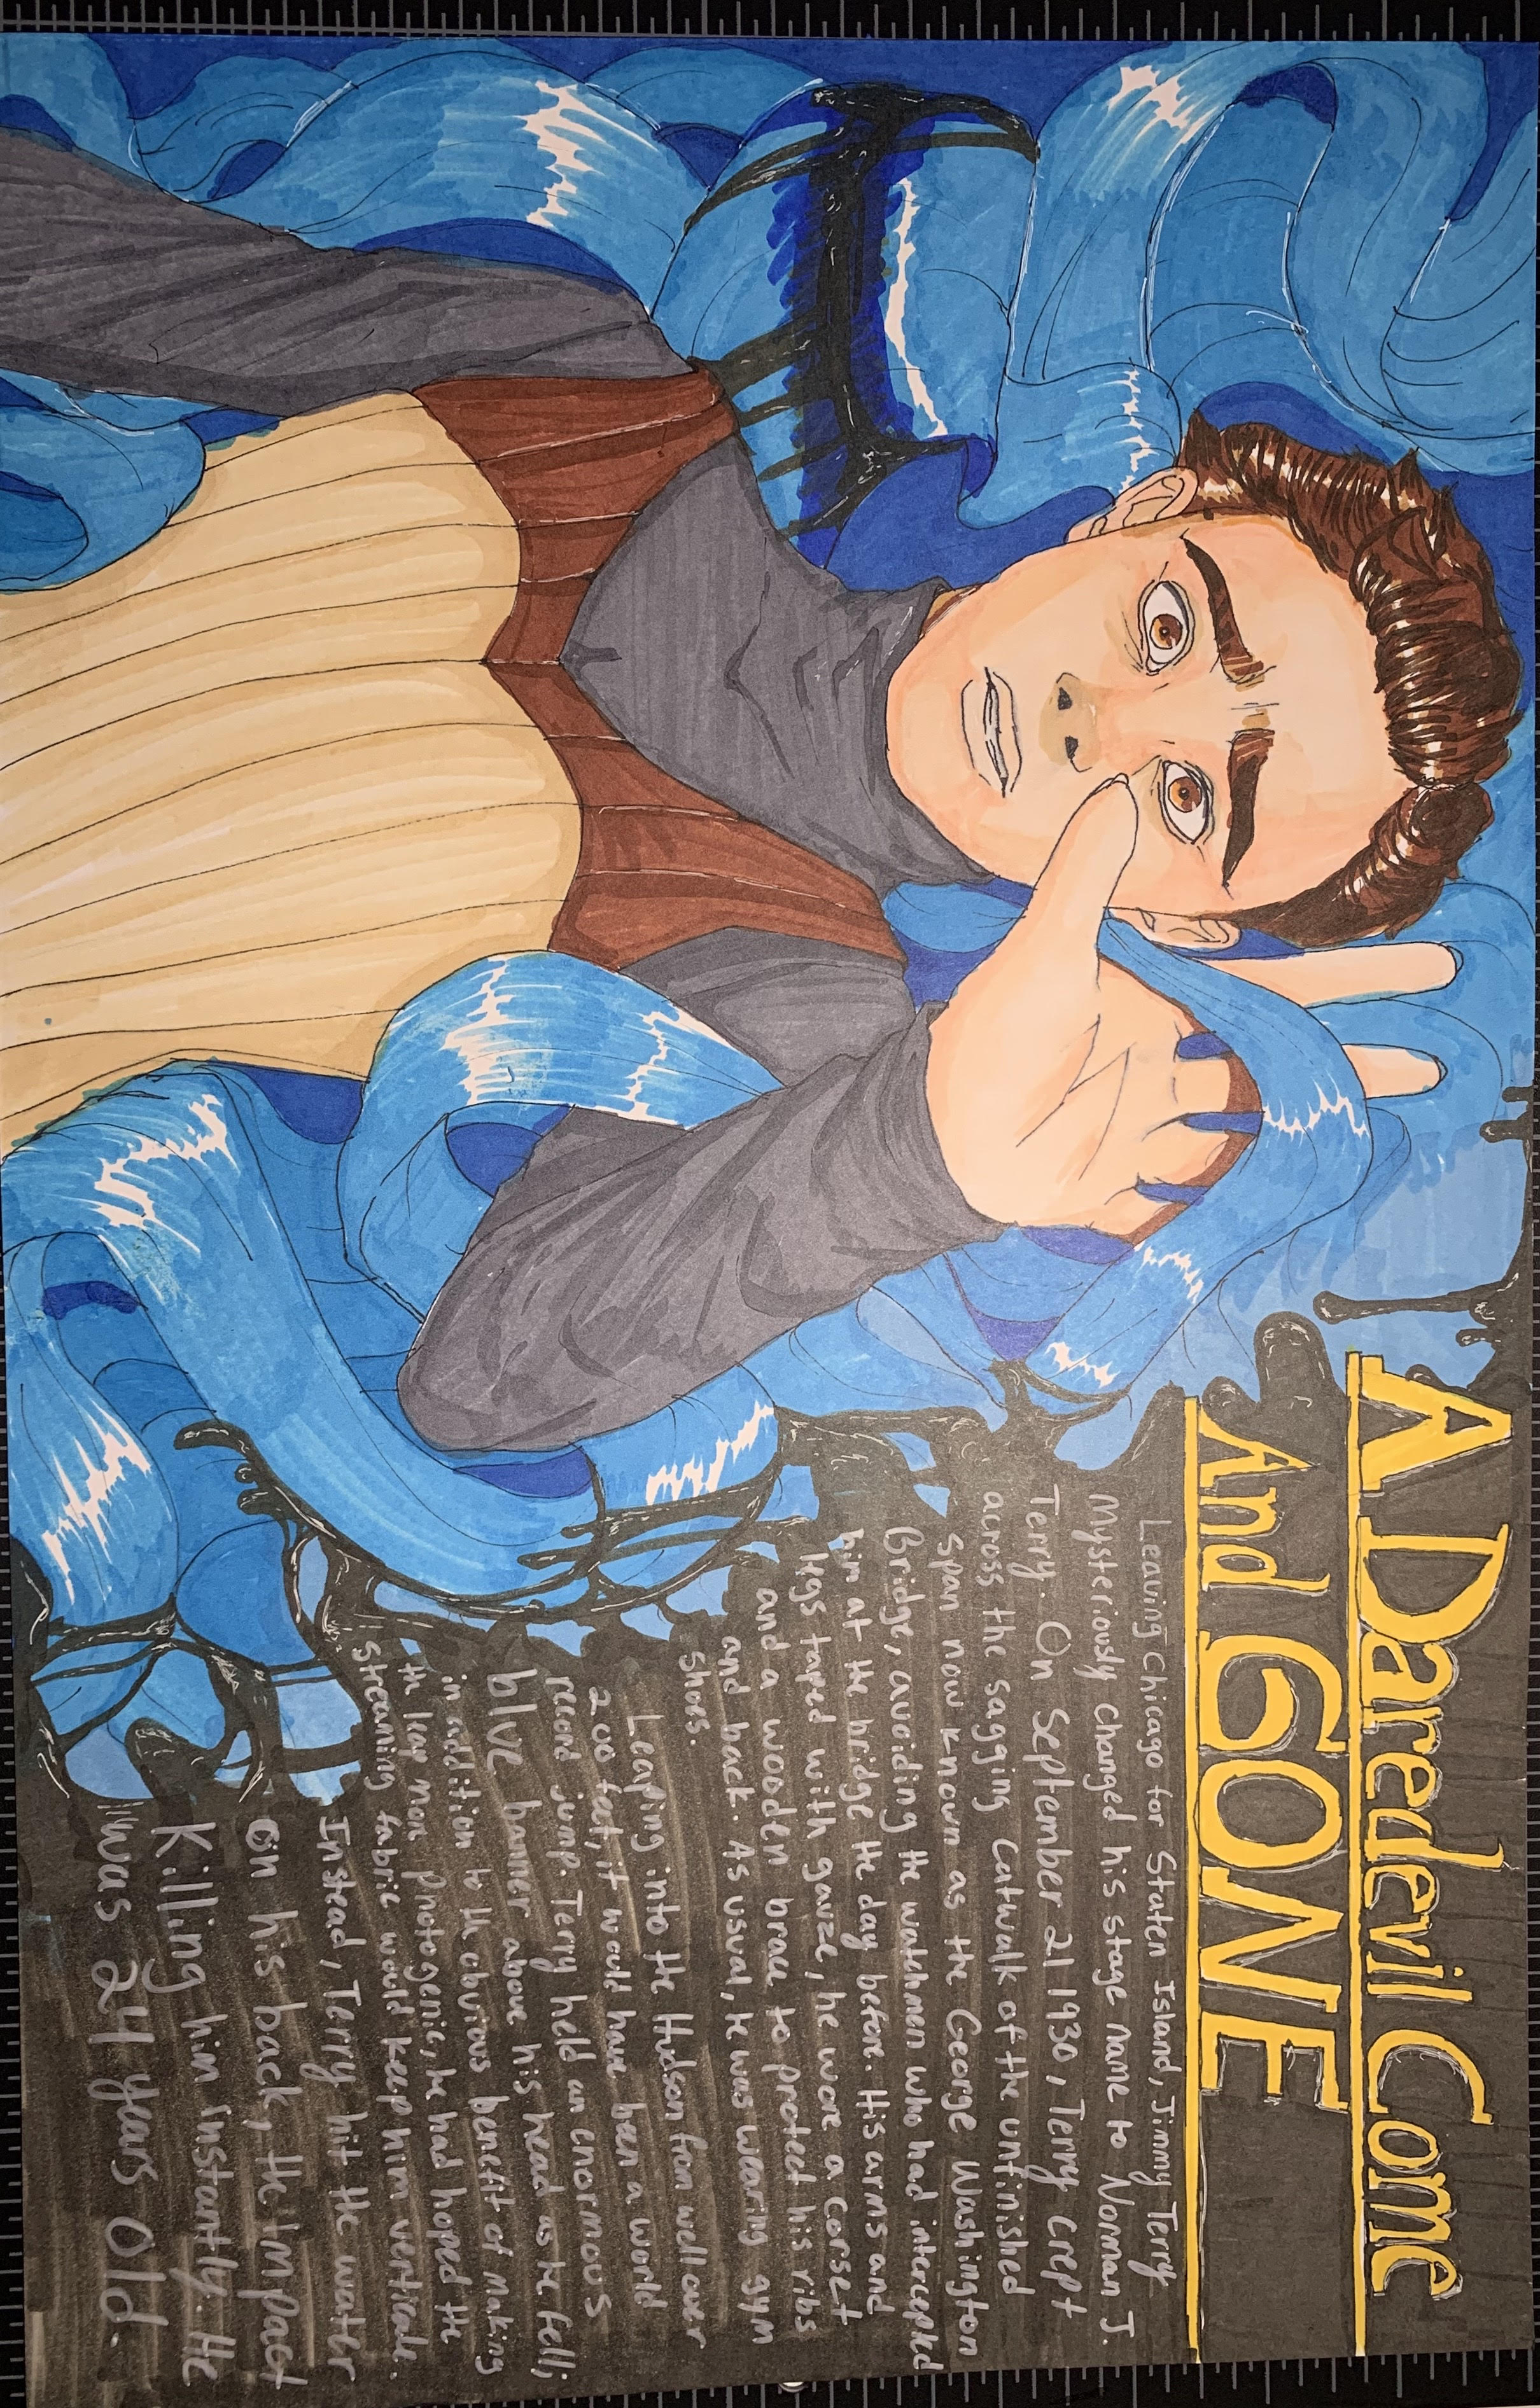 A Daredevil Come
And GONE
Leaving Chicago for Staten Island, Jimmy Terry
Mysteriously changed his stage name to Norman J.
Terry. On September 21 1930, Terry crept
across the sagging catwalk of the unfinished
span now known as the George Washington
Bridge, avoiding the watchmen who had intercepted
him at the bridge the day before. His arms and
legs taped with gauze, he wore a corset
and a wooden brace to protect his ribs
and back. As usual, he was wearing gym
shoes.
Leaping into the Hudson from well over
200 feet, it would have been a world
record jump. Terry held an enormous
blue banner above his head as he fell;
in addition to the obvious benefit of making
the leap more photogenic, he had hoped the
streaming fabric would keep him verticale.
Instead, Terry hit the water
on his back, the impact
Killing him instantly. He
was 24 years old.